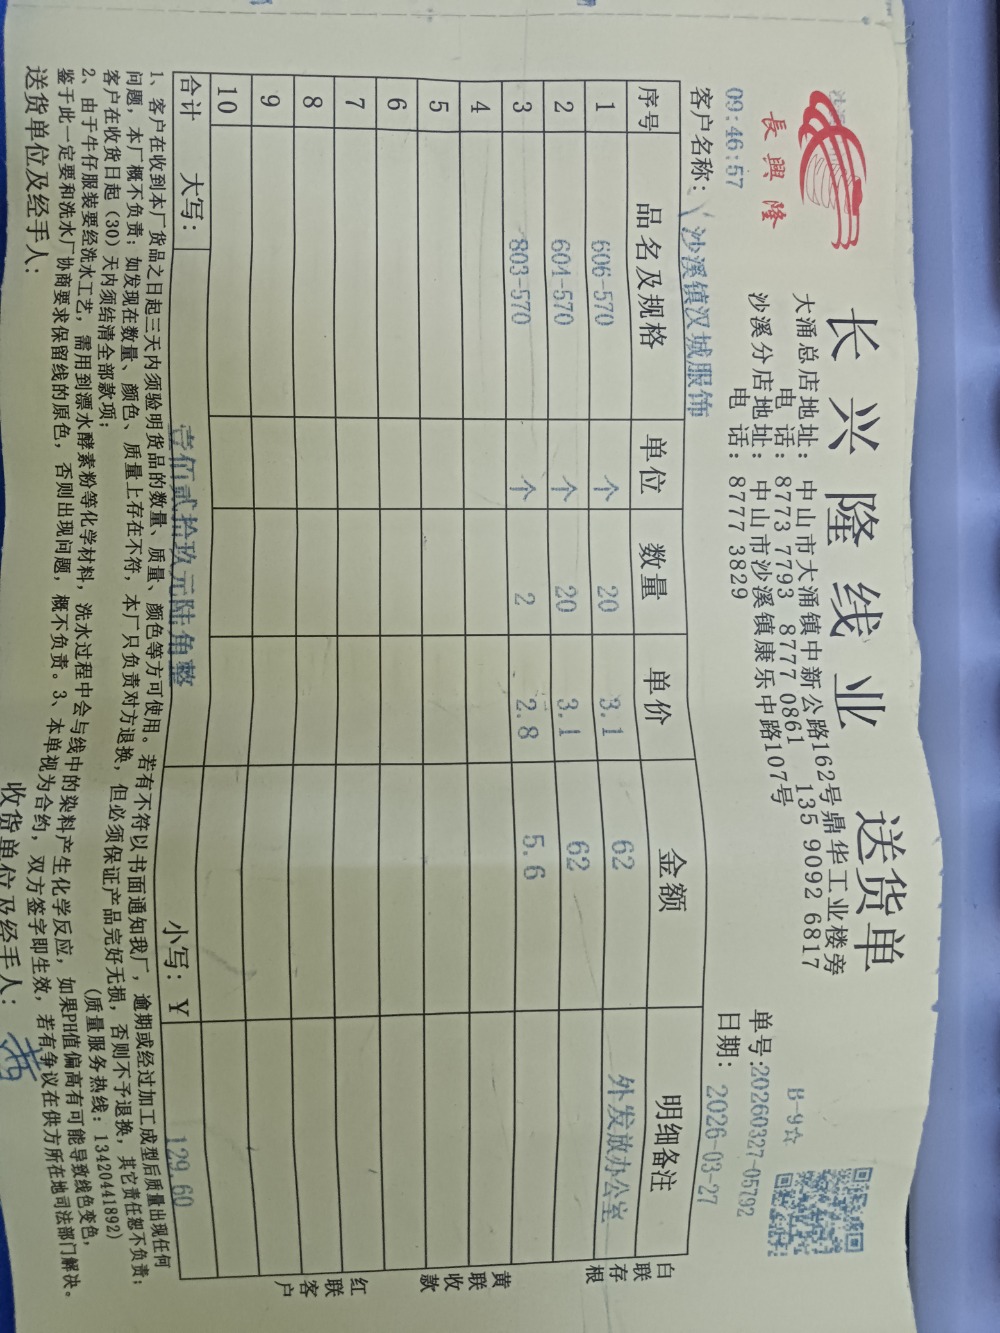 長興隆
长兴隆线业 送货单
大涌总店地址：中山市大涌镇中新公路162号鼎华工业楼旁
电 话：8773 7793 8777 0861 135 9092 6817
沙溪分店地址：中山市沙溪镇康乐中路107号
电 话：8777 3829
B-9☆
单号:20260327-05792
日期：2026-03-27
09:46:57
客户名称：沙溪镇汉城服饰
序号 品名及规格 单位 数量 单价 金额 明细备注
1 606-570 个 20 3.1 62 外发放办公室
2 604-570 个 20 3.1 62
3 803-570 个 2 2.8 5.6
4
5
6
7
8
9
10
合计 大写：壹佰贰拾玖元陆角整 小写：￥ 129.60
白联存根
黄联收款
红联客户
1、客户在收到本厂货品之日起三天内须验明货品的数量、质量、颜色等方可使用。若有不符以书面通知我厂，逾期或经过加工成型后质量出现任何
问题，本厂概不负责；如发现在数量、颜色、质量上存在不符，本厂只负责对方退换，但必须保证产品完好无损，否则不予退换，其它责任恕不负责；
客户在收货日起（30）天内须结清全部款项； (质量服务热线：13420441892)
2、由于牛仔服装要经洗水工艺，需用到漂水酵素粉等化学材料，洗水过程中会与线中的染料产生化学反应，如果PH值偏高有可能导致线色变色，
鉴于此一定要和洗水厂协商要求保留线的原色，否则出现问题，概不负责。3、本单视为合约，双方签字即生效，若有争议在供方所在地司法部门解决。
送货单位及经手人： 收货单位及经手人：